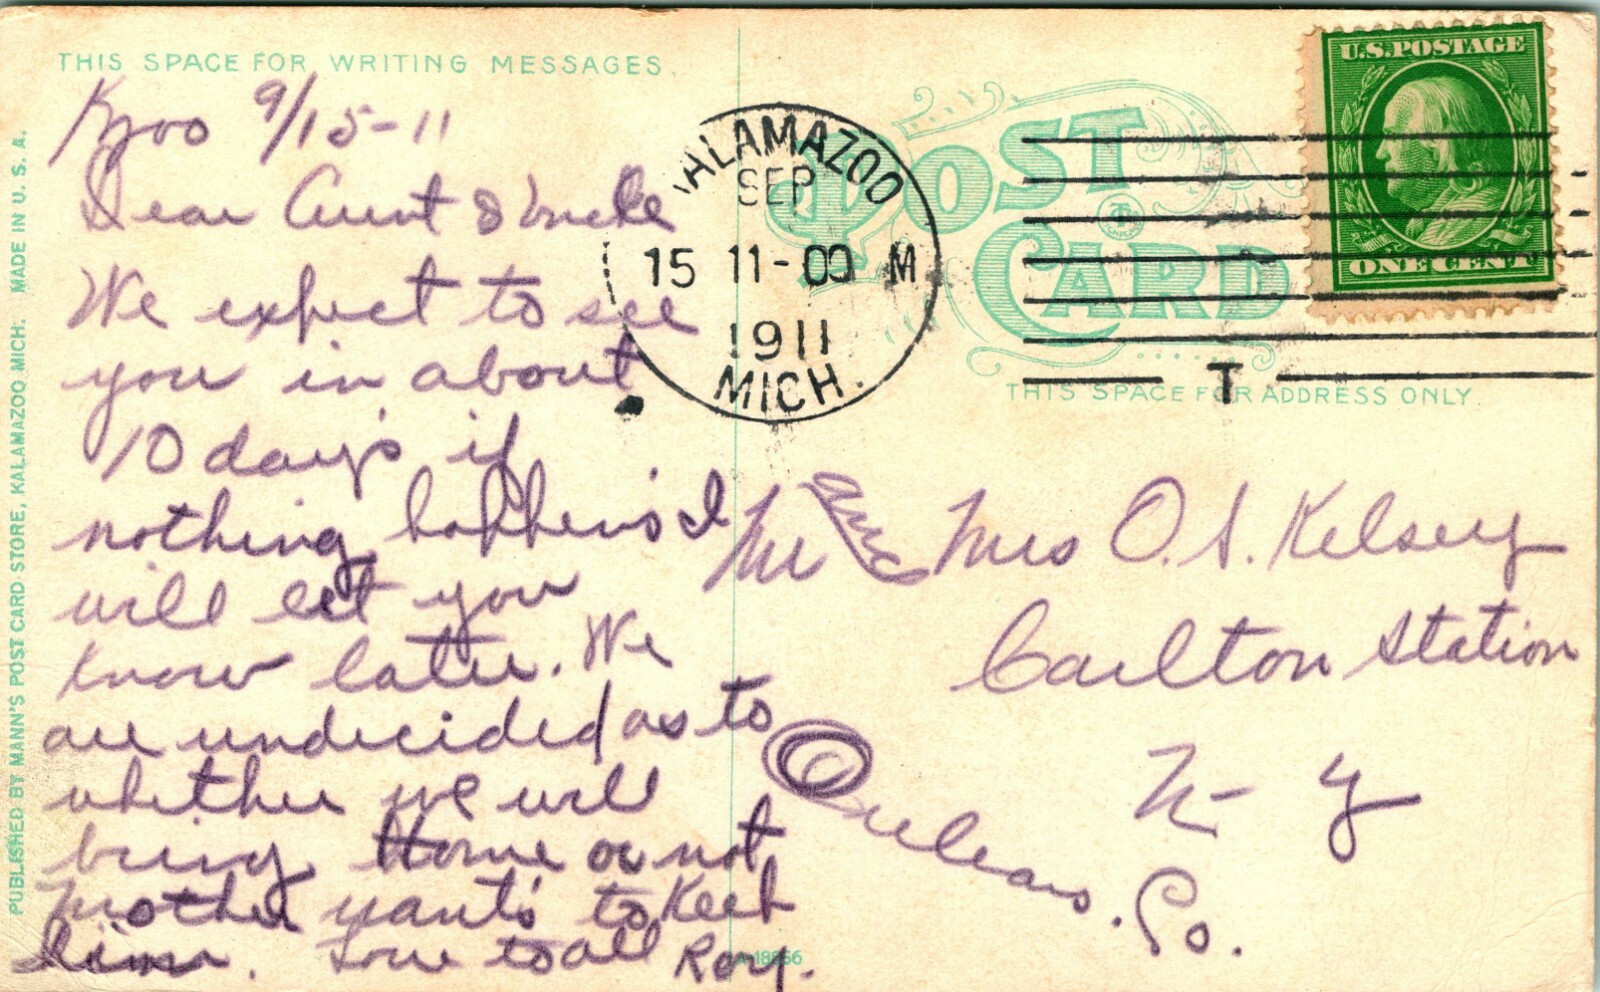 THIS SPACE FOR WRITING MESSAGES
Kzoo 9/15-11
Dear Aunt & Uncle
We expect to see
you in about
10 days if
nothing happens I
will let you
know later. We
are undecided as to
whether we will
bring Home or not
Mother wants to Keep
him. Love to all Roy.
PUBLISHED BY MANN'S POST CARD STORE, KALAMAZOO MICH. MADE IN U. S. A.
KALAMAZOO
SEP
15 11-00 M
1911
MICH.
POST
CARD
THIS SPACE FOR ADDRESS ONLY.
T
U.S. POSTAGE
ONE CENT
Mr and Mrs O. S. Kelsey
Carlton Station
N-Y
Orleans. Co.